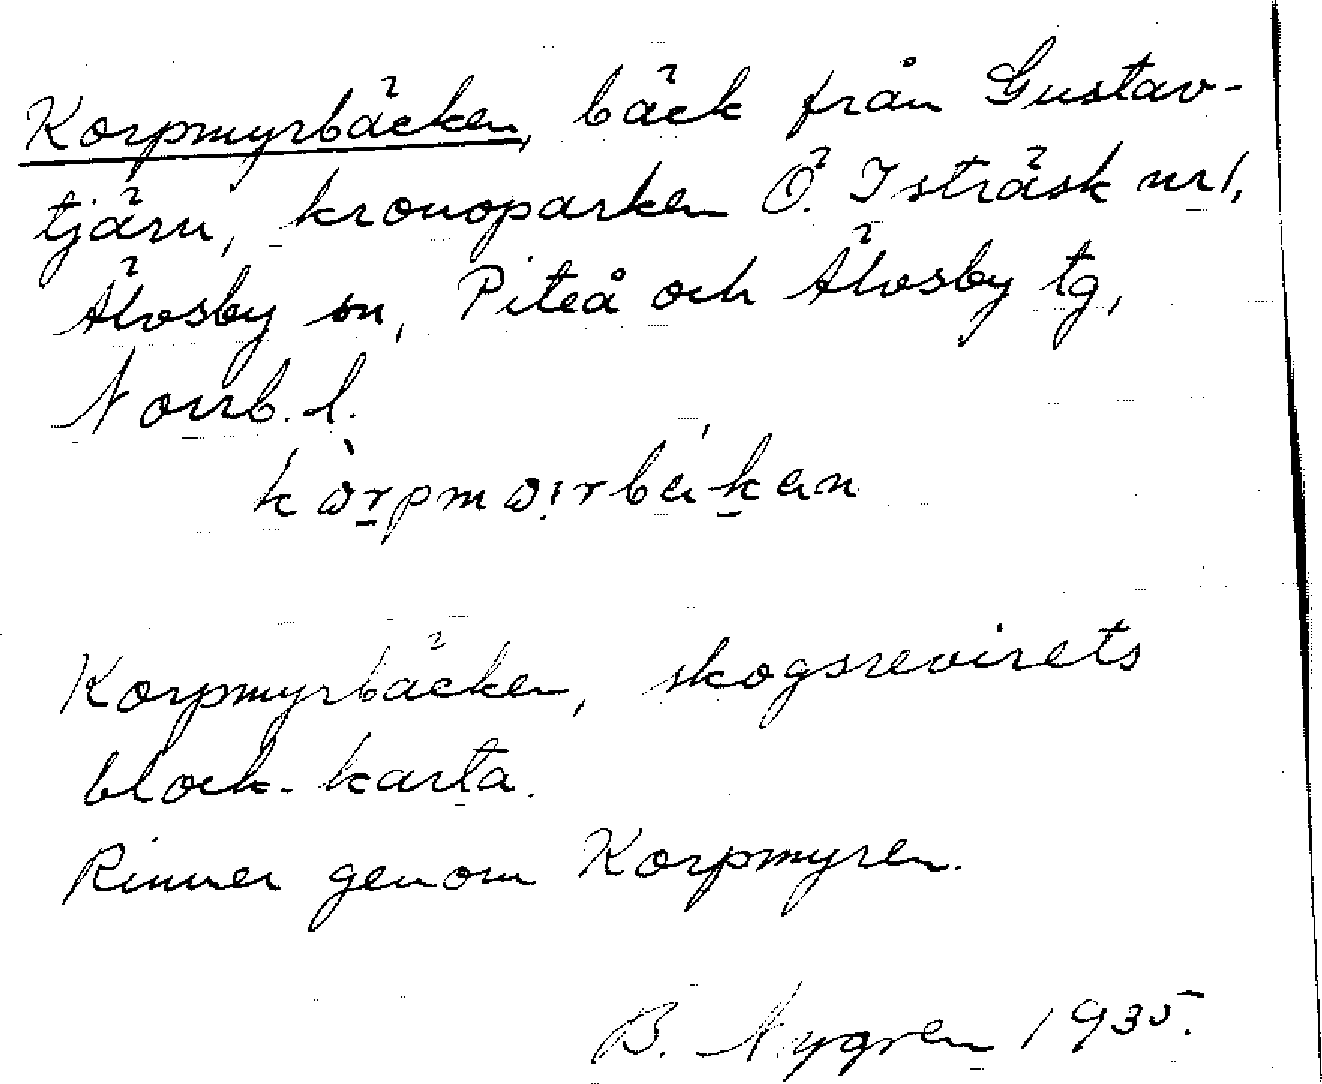 Korpmyrbäcken, bäck från Gustav-
tjärn, kronoparken Ö. Isträsk nr 1,
Älvsby sn, Piteå och Älvsby tg,
Norrb. l.
Korpmyrbäcken, skogsrevirets
block-karta.
Rinner genom Korpmyren.
B. Nygren 1935.